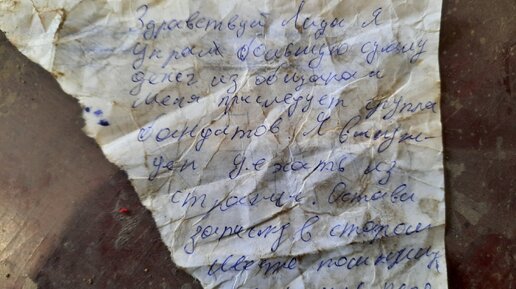 Здравствуй Лида Я
украл большую сумму
денег из общака и
меня преследует группа
бандатов. Я вынуж-
ден уехать из
страны. Остави
записку в старом
месте